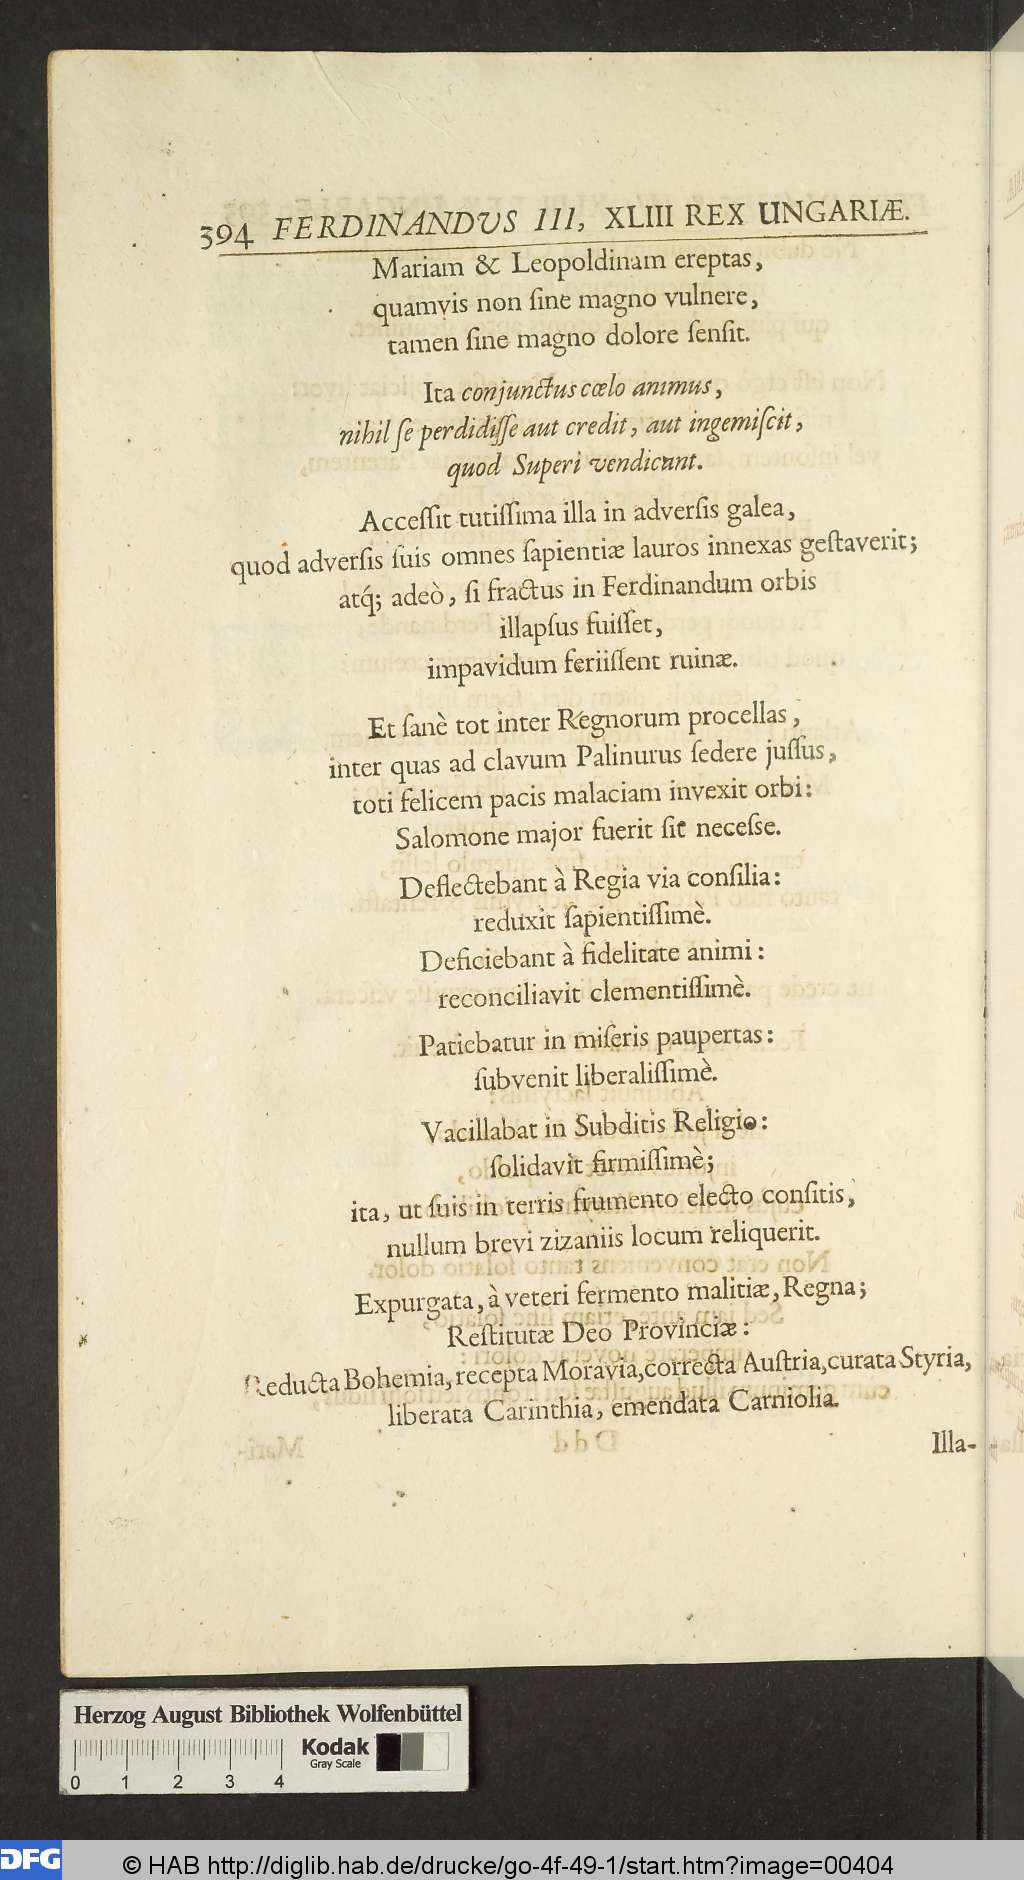 394 FERDINANDVS III, XLIII REX UNGARIÆ.
Mariam & Leopoldinam ereptas,
quamvis non ſine magno vulnere,
tamen ſine magno dolore ſenſit.
Ita conjunctus cœlo animus,
nihil ſe perdidiſſe aut credit, aut ingemiſcit,
quod Superi vendicant.
Acceſſit tutiſſima illa in adverſis galea,
quod adverſis ſuis omnes ſapientiæ lauros innexas geſtaverit;
atq́; adeò, ſi fractus in Ferdinandum orbis
illapſus fuiſſet,
impavidum feriiſſent ruinæ.
Et ſanè tot inter Regnorum procellas,
inter quas ad clavum Palinurus ſedere juſſus,
toti felicem pacis malaciam invexit orbi:
Salomone major fuerit ſit neceſſe.
Deflectebant à Regia via conſilia:
reduxit ſapientiſſimè.
Deficiebant à fidelitate animi:
reconciliavit clementiſſimè.
Patiebatur in miſeris paupertas:
ſubvenit liberaliſſimè.
Vacillabat in Subditis Religio:
ſolidavit firmiſſimè;
ita, ut ſuis in terris frumento electo conſitis,
nullum brevi zizaniis locum reliquerit.
Expurgata, à veteri fermento malitiæ, Regna;
Reſtitutæ Deo Provinciæ:
Reducta Bohemia, recepta Moravia, correcta Auſtria, curata Styria,
liberata Carinthia, emendata Carniolia.
Illa-
Herzog August Bibliothek Wolfenbüttel
Kodak
Gray Scale
0 1 2 3 4
DFG
© HAB http://diglib.hab.de/drucke/go-4f-49-1/start.htm?image=00404